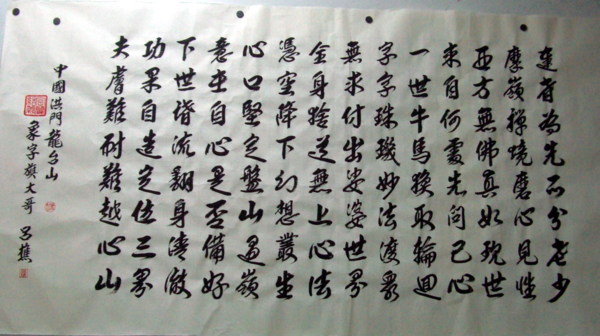 達者為先不分老少
摩嶺禪境磨心見性
西方無佛真如現世
來自何處先問己心
一世牛馬換取輪迴
字字珠璣妙法渡眾
無求付出娑婆世界
金身捨送無上心法
憑空降下幻想叢生
心口堅定盤山過嶺
意在自心是否備好
下世流翻身清澈
功果自造定位三界
夫膚難耐難越心山
中國洪門龍台山
象字旗大哥 呂樵